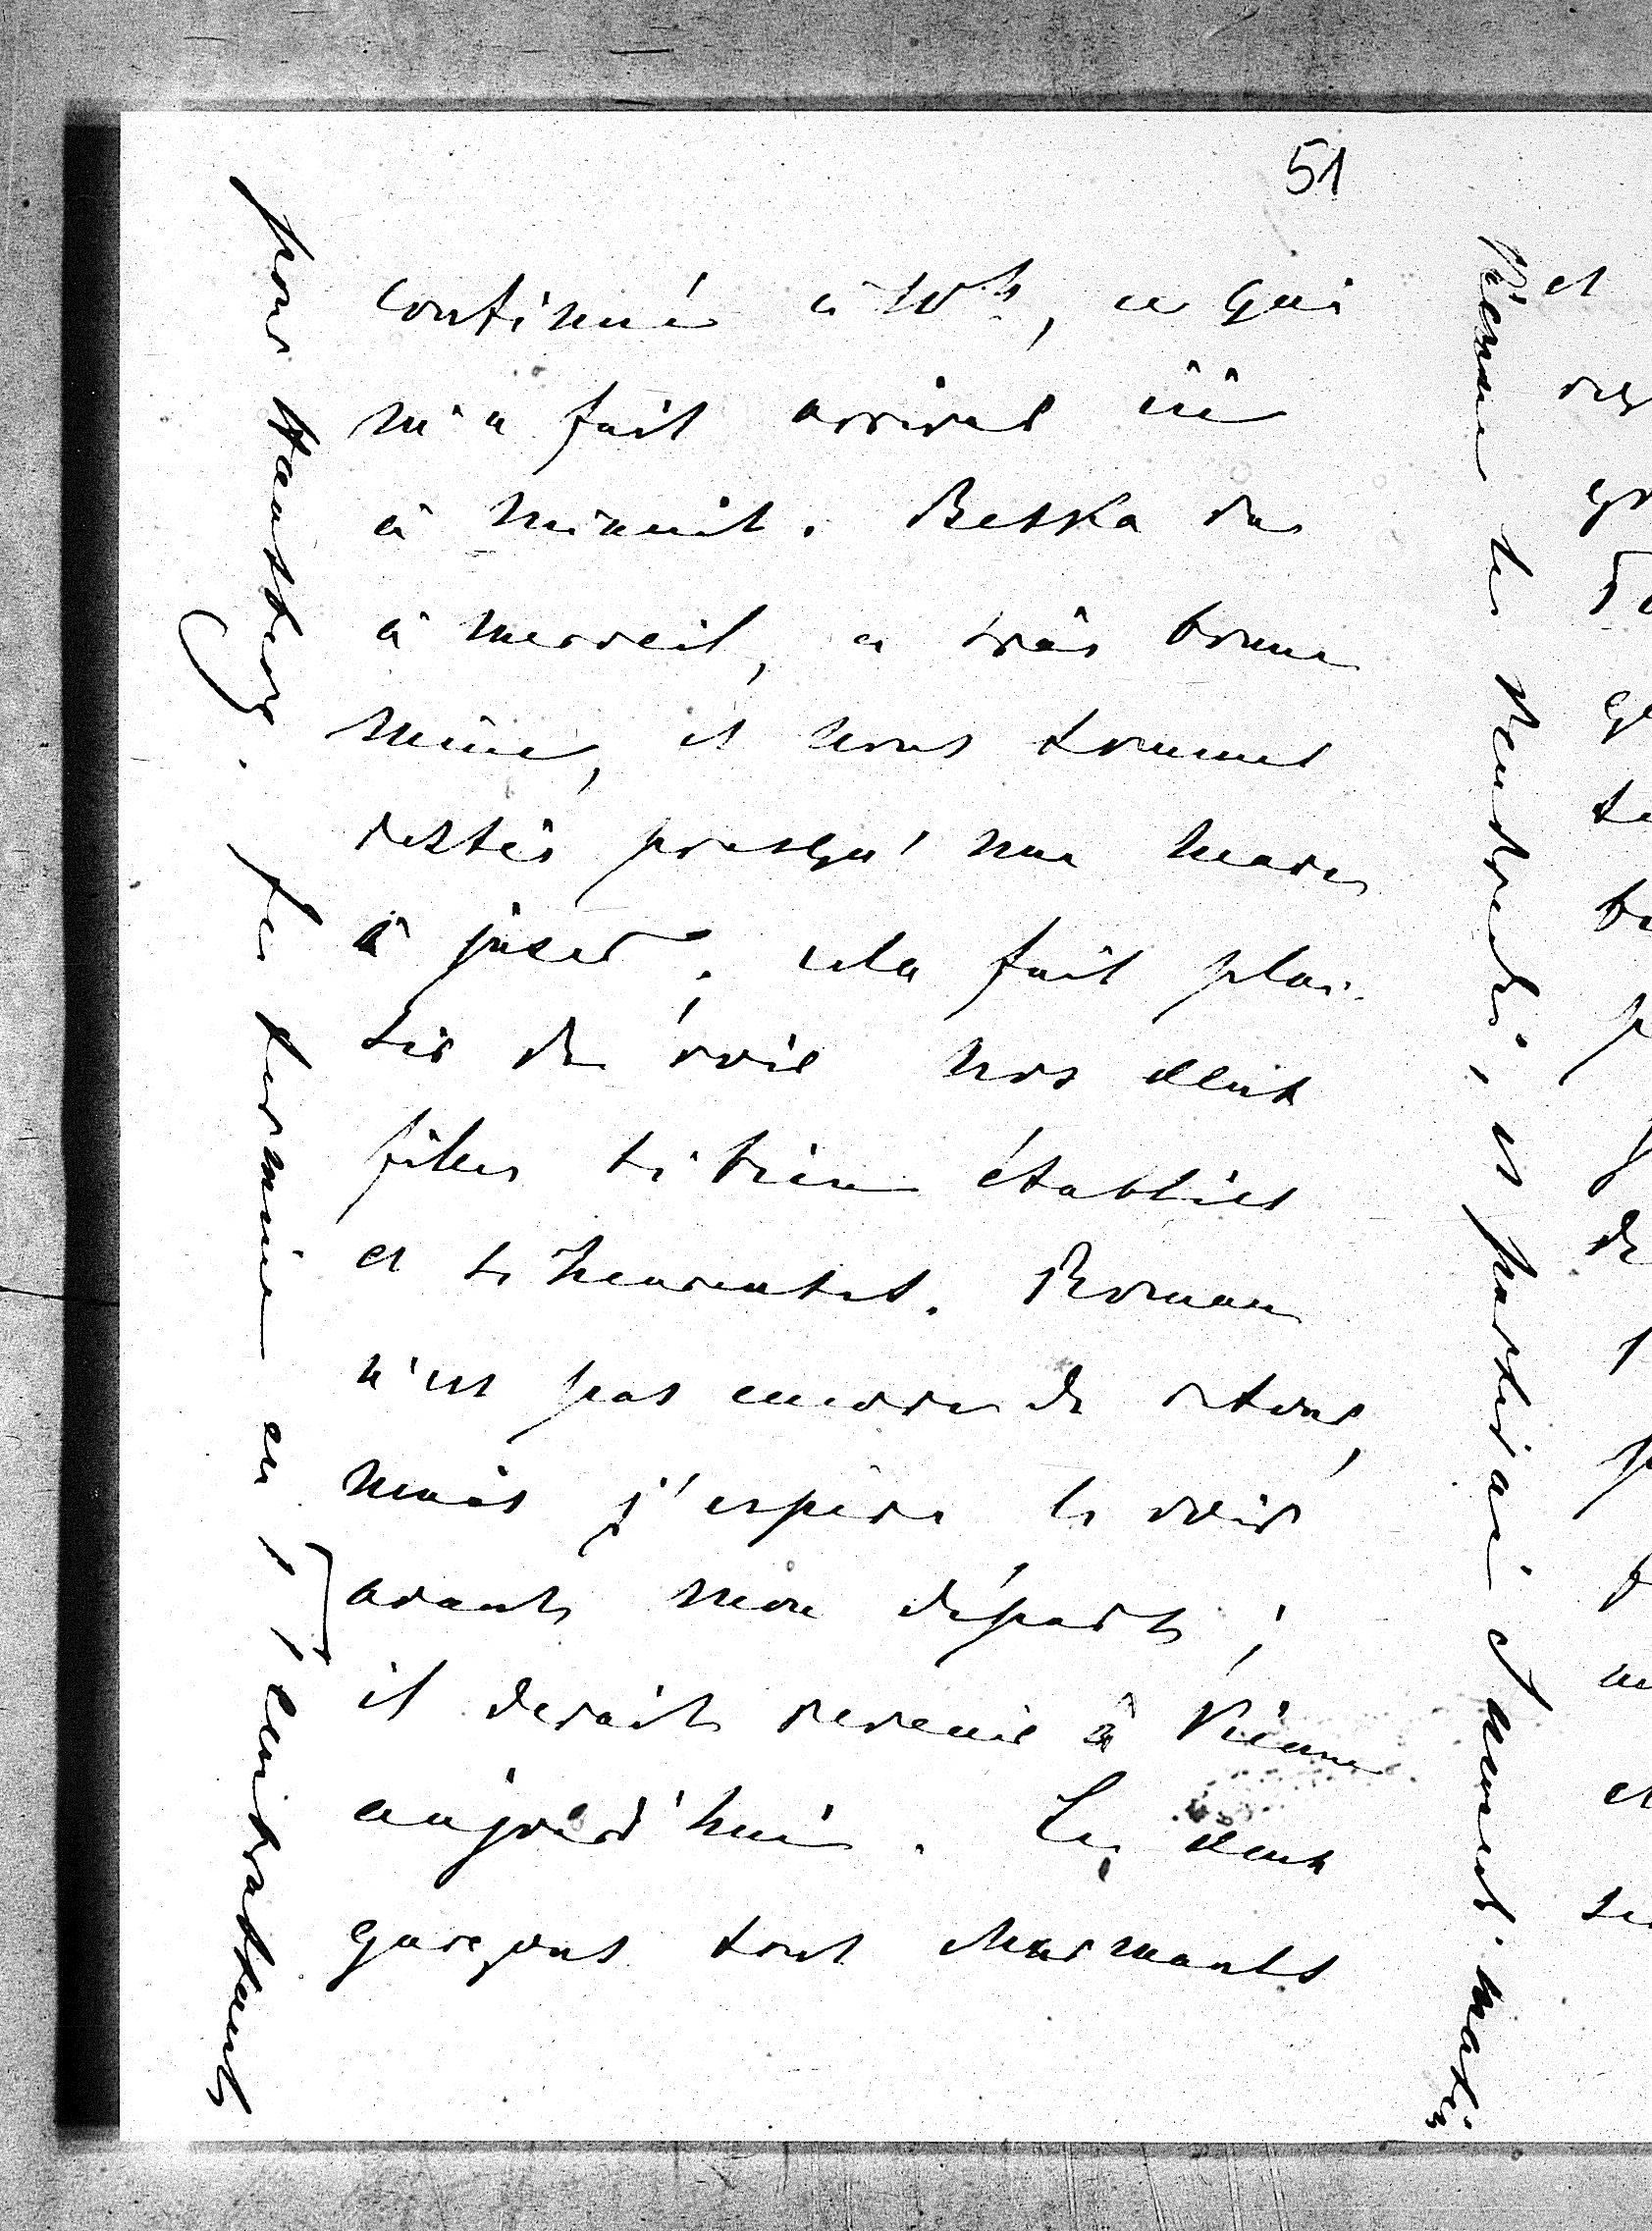 51
continué à 10h, ce qui
m'a fait arriver ici
à minuit. Betka va
à merveil, a très bonne
mine, et nous sommes
restés presqu' une heure
à jaser; cela fait plai-
sir de voir nos deux
filles si bien établies
et si heureuses. Roman
n'est pas encore de retour,
mais j'espère le voir
avant mon départ;
il devait revenir à Vienne
aujourd'hui. Les deux
garçons sont charmants
pour Hambourg. Je termine en t'embrassant
Vienne les Vendredi, et partirai Samedi matin
et